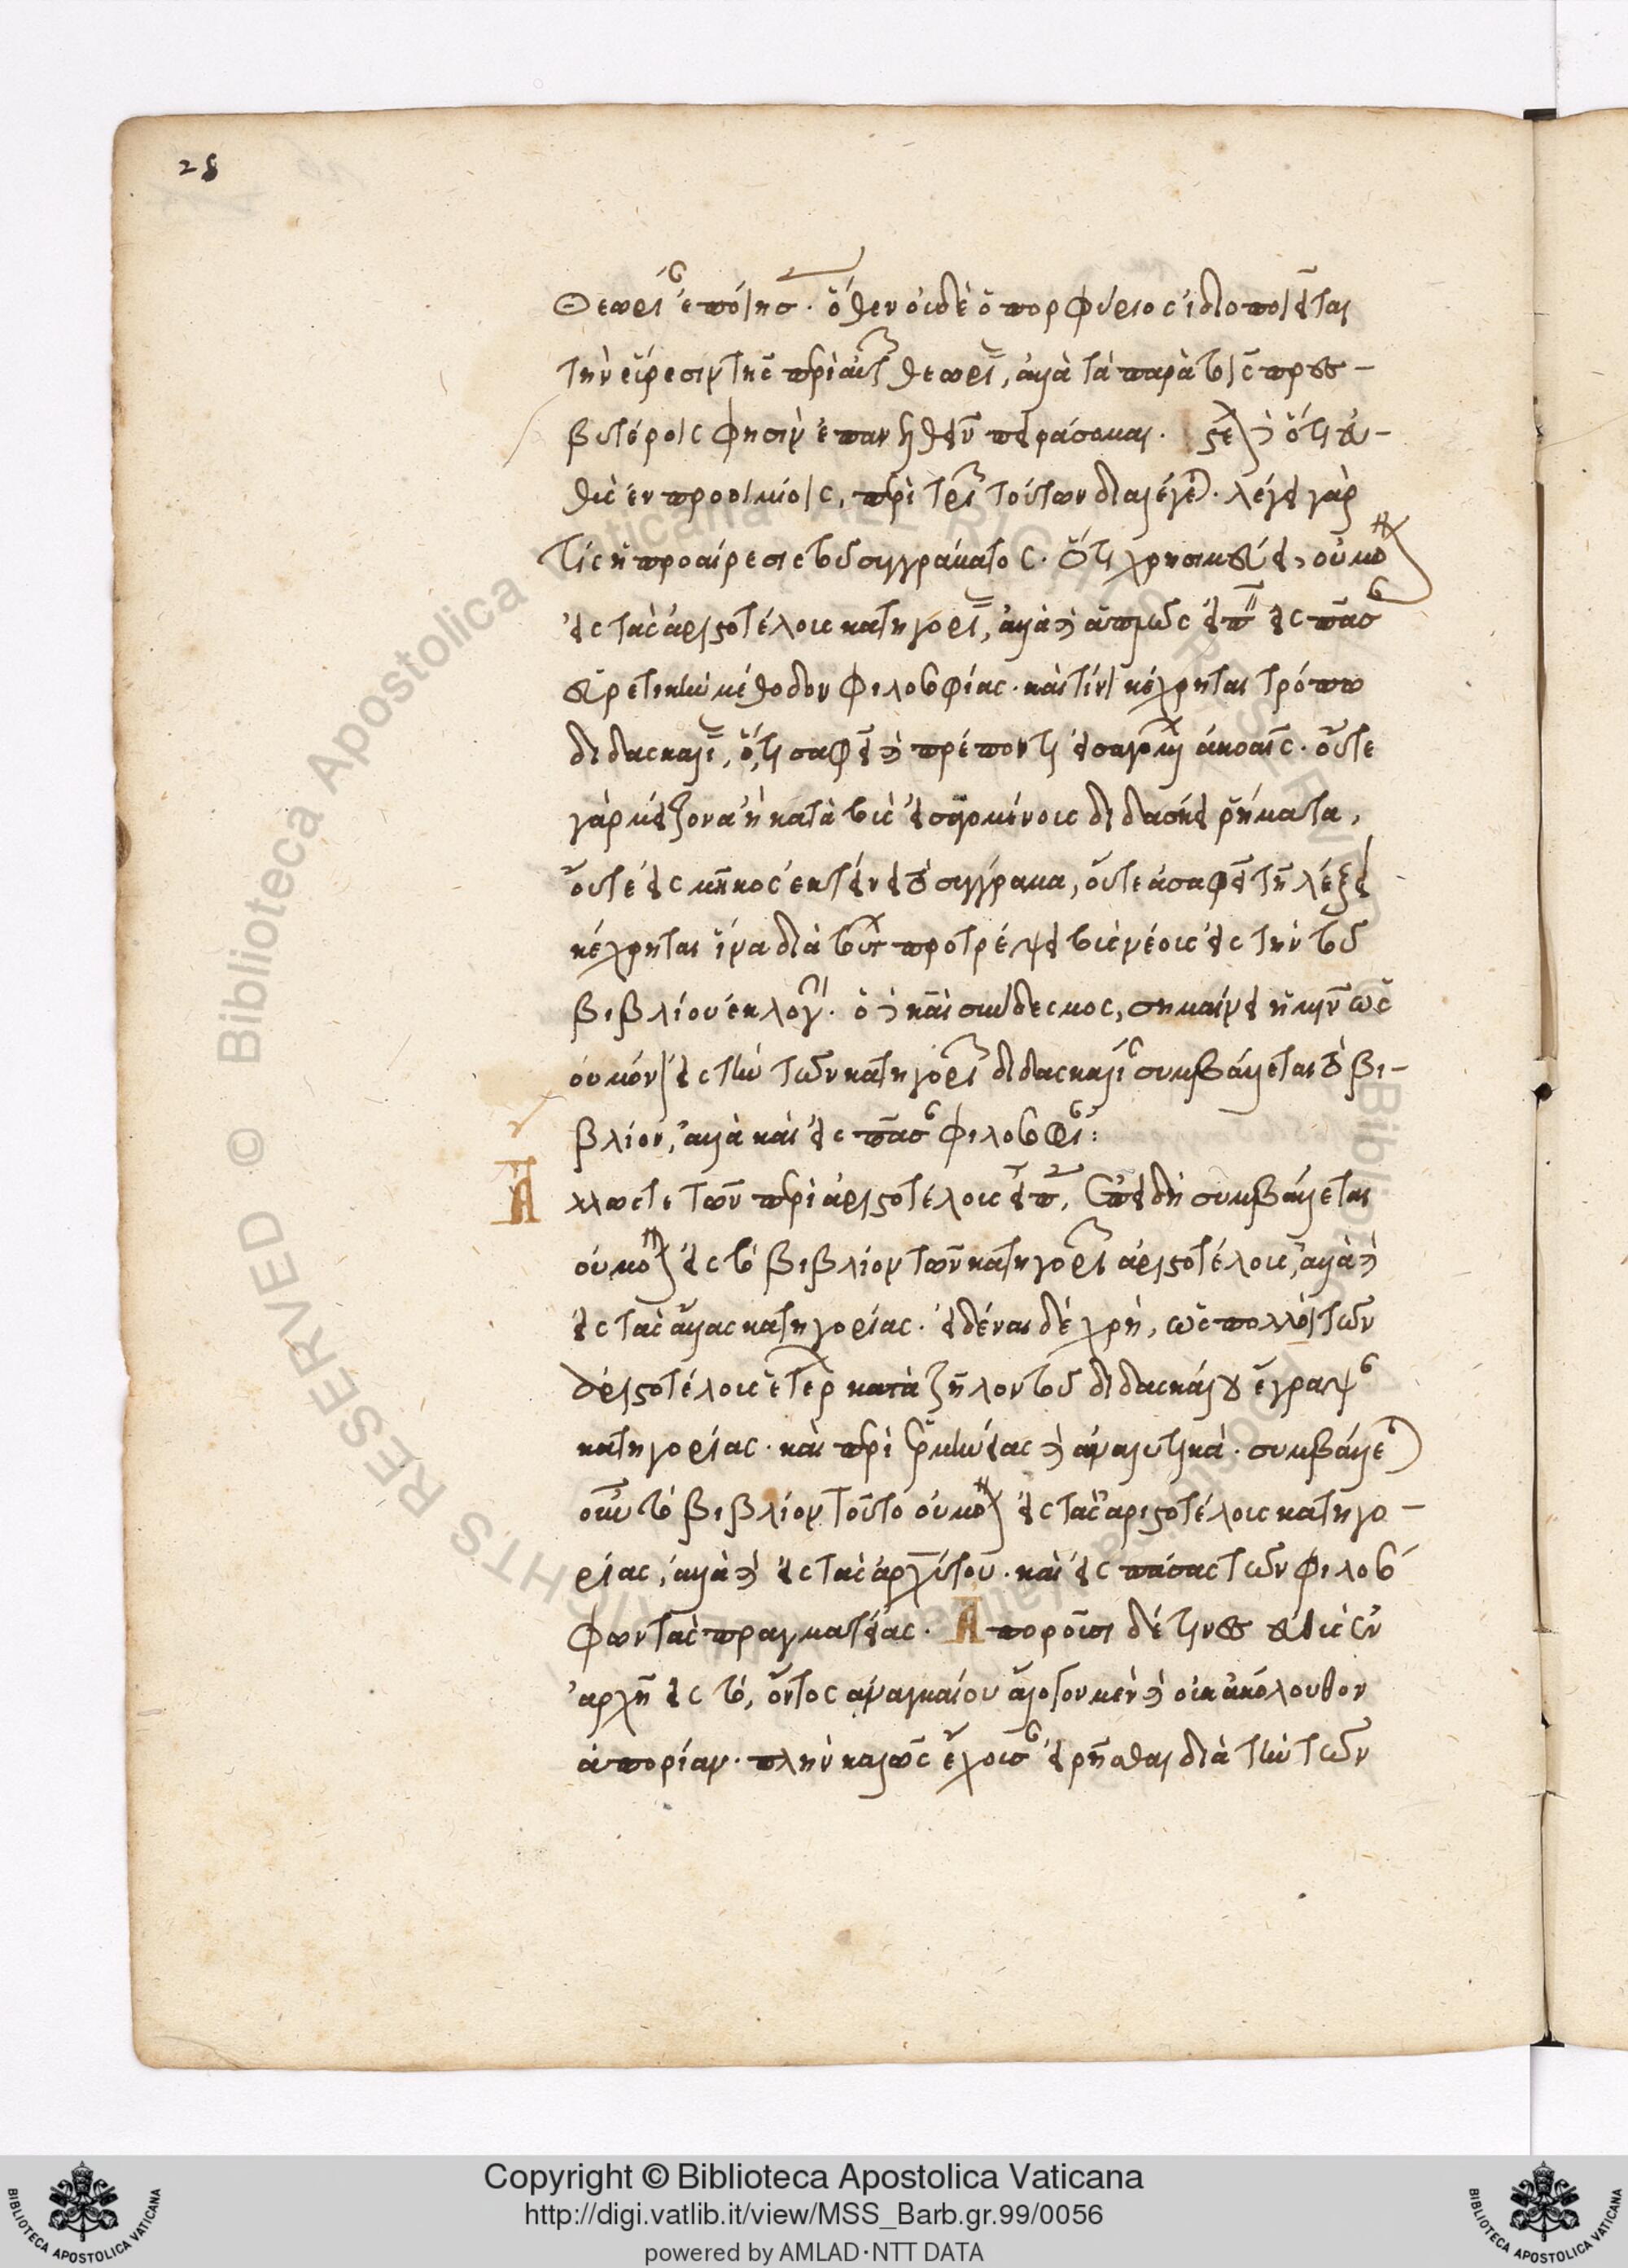 28
θεωρίαν ἐποίησαν. ὅθεν οὐδὲ ὁ πορφύριος ἰδιοποιεῖται
τὴν εὕρεσιν τῆς περὶ αὐτῶν θεωρίας, ἀλλὰ τὰ παρὰ τοῖς πρεσ-
βυτέροις φησὶν ἐπανελθεῖν πειράσομαι.
θὺς ἐν προοιμίοις, περὶ τριῶν τούτων διαλέγεται. λέγει γὰρ
τίς ἡ προαίρεσις τοῦ συγγράμματος. ὅτι χρησιμεύει, οὐ μόνον
εἰς τὰς ἀριστοτέλους κατηγορίας, ἀλλὰ καὶ ἁπλῶς εἰπεῖν εἰς πᾶσαν
εὑρετικὴν μέθοδον φιλοσοφίας. καὶ τίνι κέχρηται τρόπω
διδασκαλίας, ὅτι σαφεῖ καὶ πρέποντι εἰσαγωγικαῖς ἀκοαῖς. οὔτε
γὰρ μείζονα ἢ κατὰ τοὺς εἰσαγομένους διδάσκει ῥήματα,
οὔτε εἰς μῆκος ἐκτείνει τὸ σύγγραμμα, οὔτε ἀσαφεῖ τῆ λέξει
κέχρηται ἵνα διὰ τούτων προτρέψει τοὺς νέους εἰς τὴν τοῦ
βιβλίου ἐκλογήν. ὁ καὶ σύνδεσμος, σημαίνει ἡμῖν ὡς
οὐ μόνον εἰς τὴν τῶν κατηγοριῶν διδασκαλίαν συμβάλλεται τὸ βι-
βλίον, ἀλλὰ καὶ εἰς πᾶσαν φιλοσοφίαν:
Ἄλλως τε τῶν περὶ ἀριστοτέλους εἶπεν, ἐπειδὴ συμβάλλεται
οὐ μόνον εἰς τὸ βιβλίον τῶν κατηγοριῶν ἀριστοτέλους, ἀλλὰ καὶ
εἰς τὰς ἄλλας κατηγορίας. εἰδέναι δὲ χρή, ὡς πολλοὶ τῶν
ἀριστοτέλους ἑταίρων κατὰ ζῆλον τοῦ διδασκάλου ἔγραψαν
κατηγορίας. καὶ περὶ ἑρμηνείας καὶ ἀναλυτικά. συμβάλλεται
οὖν τὸ βιβλίον τοῦτο οὐ μόνον εἰς τὰς ἀριστοτέλους κατηγο-
ρίας, ἀλλὰ καὶ εἰς τὰς ἀρχύτου. καὶ εἰς πάσας τῶν φιλοσό
φων τὰς πραγματείας. Ἀποροῦσι δέ τινες εὐθὺς ἐν
ἀρχῆ εἰς τό, ὄντος ἀναγκαίου ἄλογον μὲν καὶ οὐκ ἀκόλουθον
ἀπορίαν. πλὴν καλῶς ἔχουσαν εἰρῆσθαι διὰ τὴν τῶν
© Biblioteca Apostolica Vaticana ALL RIGHTS RESERVED
Copyright © Biblioteca Apostolica Vaticana
http://digi.vatlib.it/view/MSS_Barb.gr.99/0056
powered by AMLAD·NTT DATA
BIBLIOTECA APOSTOLICA VATICANA
BIBLIOTECA APOSTOLICA VATICANA